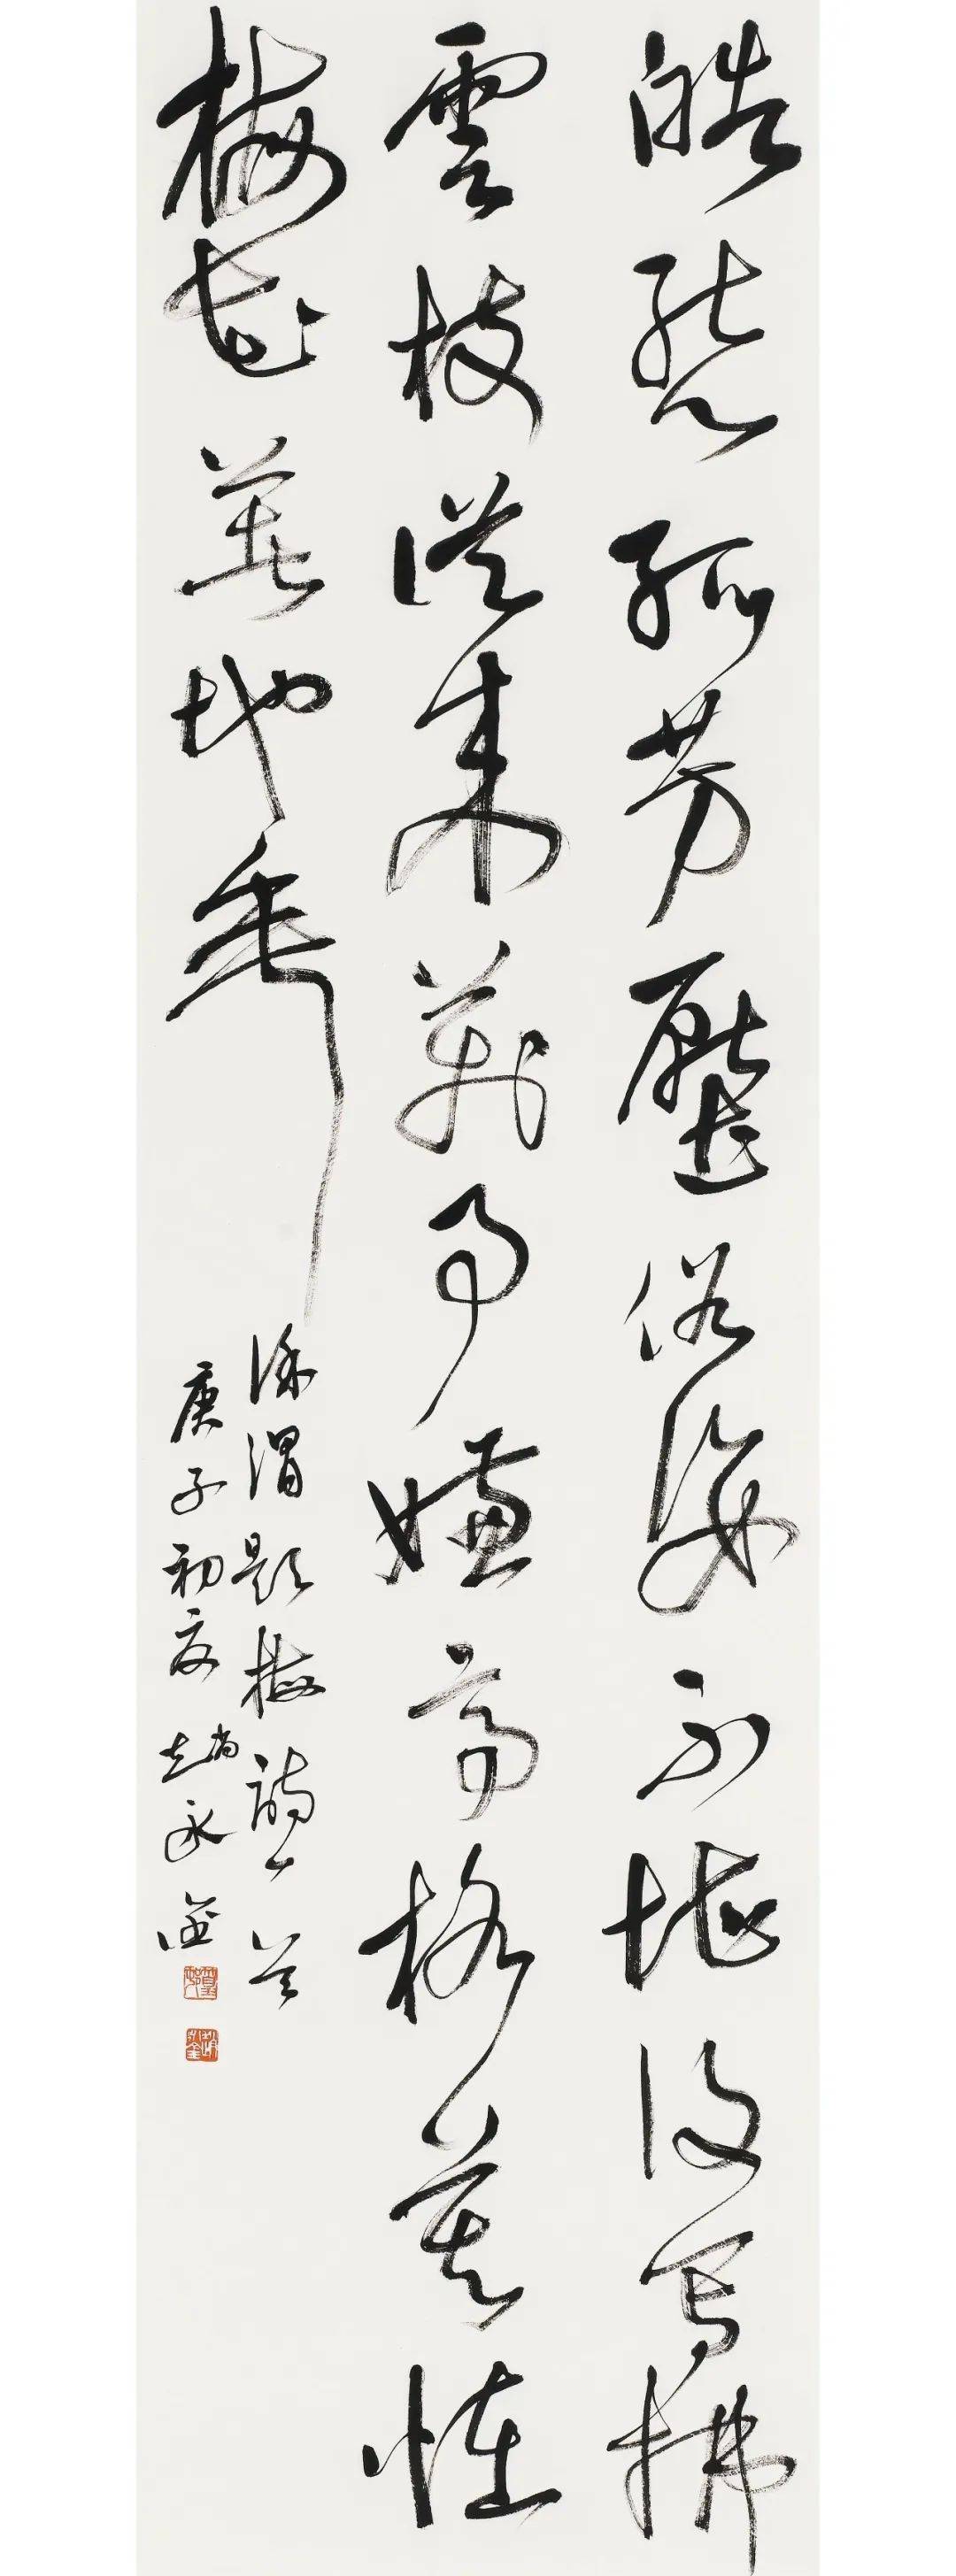 皓態孤芳壓俗姿不堪復寫拂
雲枝從來萬事嫌高格莫怪
梅花著地垂
徐渭題梅詩一首
庚子初夏趙永